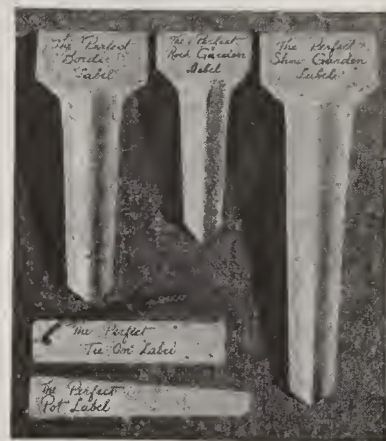 The Perfect
Border
Label
The Perfect
Rock Garden
Label
The Perfect
Show Garden
Labels
The Perfect
Tie On Label
The Perfect
Pot Label